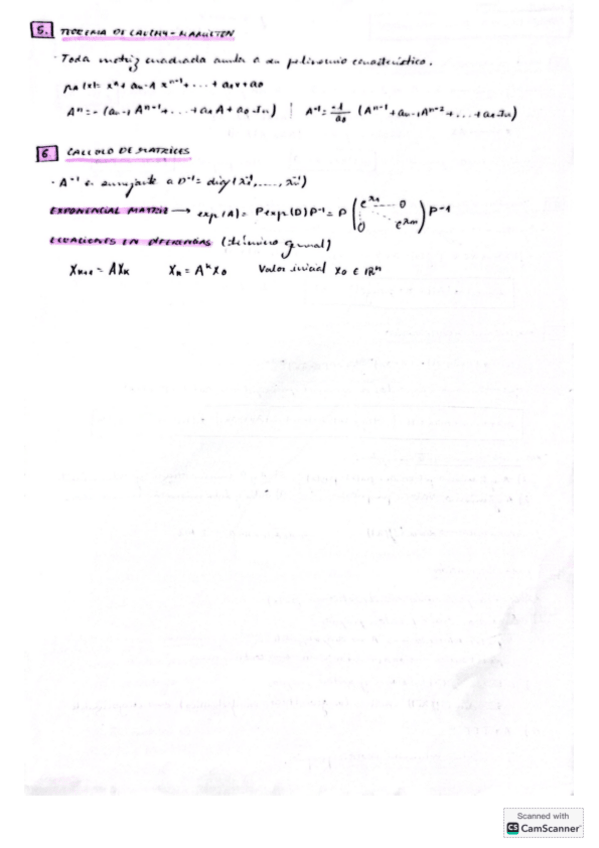 5. TEOREMA DE CAUCHY-HAMILTON
· Toda matriz cuadrada anula a su polinomio característico.
pA(x) = xⁿ + aₙ₋₁ xⁿ⁻¹ + ... + a₁x + a₀
Aⁿ = -(aₙ₋₁ Aⁿ⁻¹ + ... + a₁A + a₀ Iₙ) | A⁻¹ = -1/a₀ (Aⁿ⁻¹ + aₙ₋₁Aⁿ⁻² + ... + a₁Iₙ)
6 CALCULO DE MATRICES
· A⁻¹ es semejante a D⁻¹ = diag(λ₁⁻¹, ..., λₙ⁻¹)
EXPONENCIAL MATRIZ → exp(A) = P exp(D) P⁻¹ = P (e^λ₁ ... 0 ; 0 e^λₙ) P⁻¹
ECUACIONES EN DIFERENCIAS (término general)
Xₖ₊₁ = AXₖ Xₖ = AᵏX₀ Valor inicial X₀ ∈ ℝⁿ
Scanned with
CS CamScanner